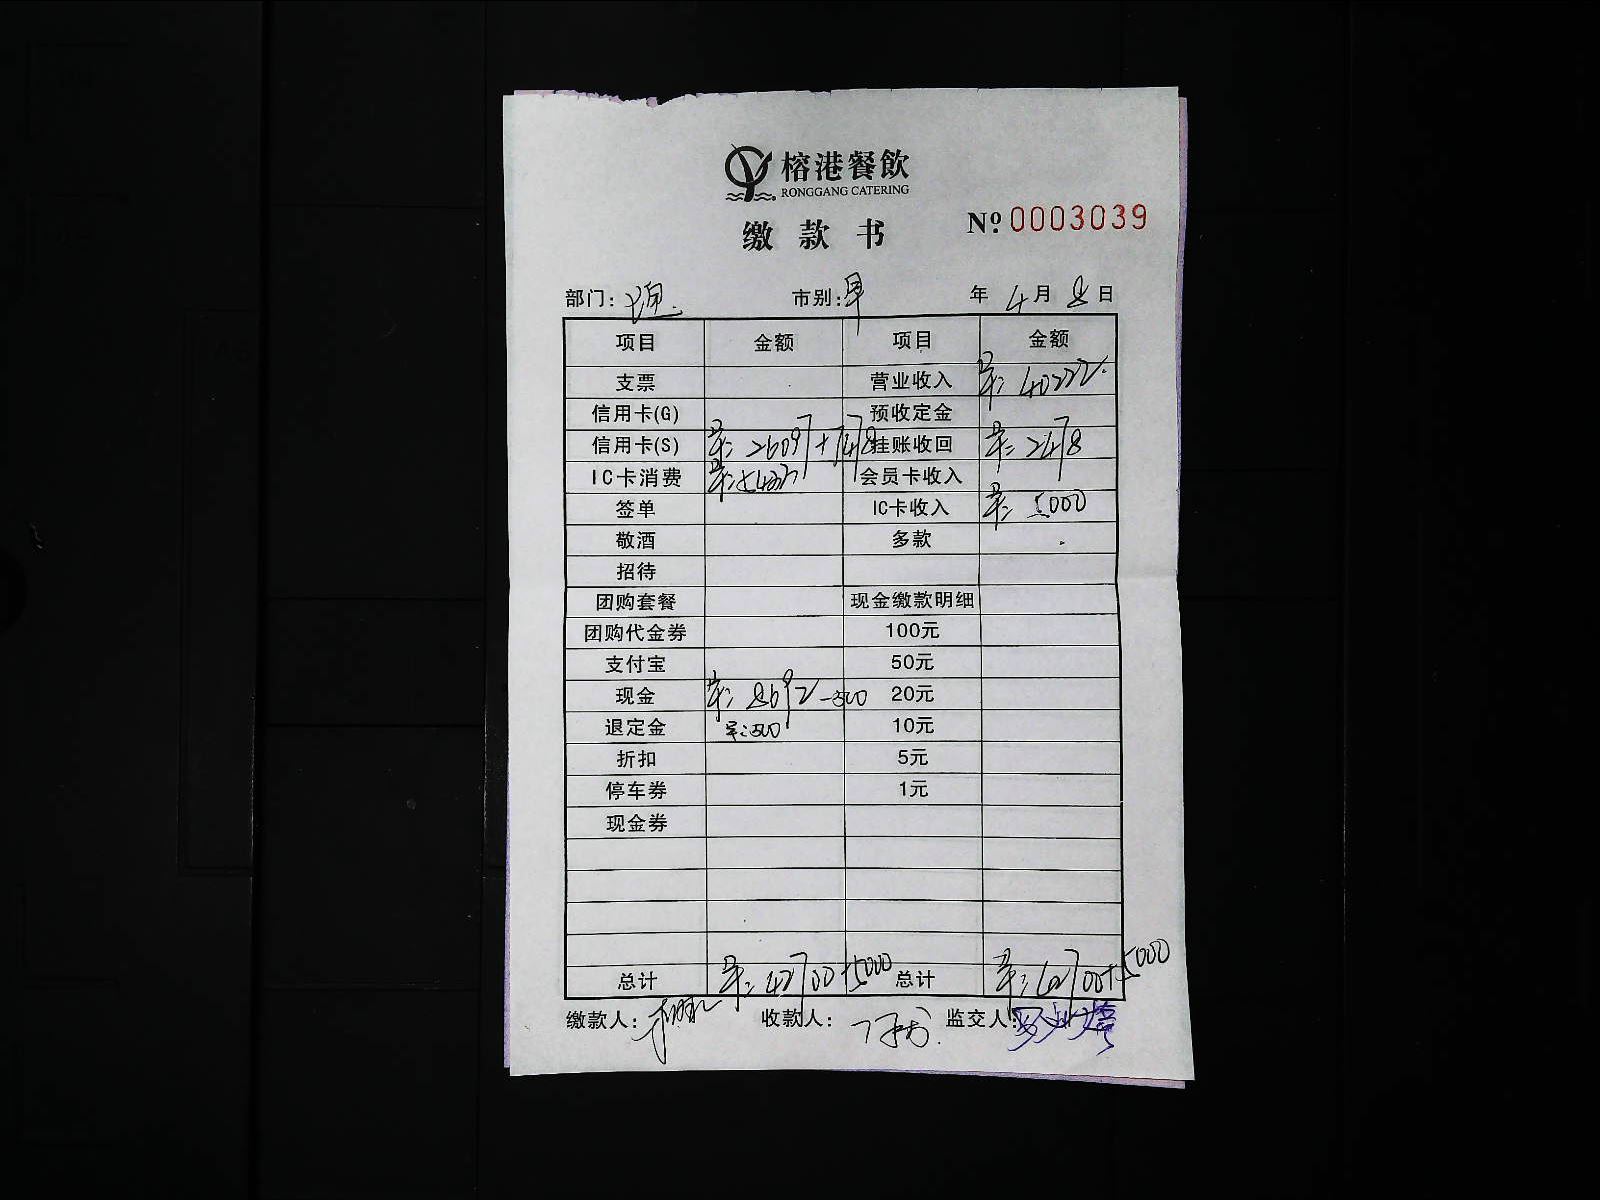 榕港餐飲
RONGGANG CATERING
缴款书
№ 0003039
部门: 市别:早 年 4月 8日
项目 金额 项目 金额
支票 营业收入 早: 40222.
信用卡(G) 预收定金
信用卡(S) 早: 26097+7478 挂账收回 早: 2478
IC卡消费 早: 会员卡收入
签单 IC卡收入 早: 5000
敬酒 多款
招待
团购套餐 现金缴款明细
团购代金券 100元
支付宝 50元
现金 早: 8692-500 20元
退定金 早:500 10元
折扣 5元
停车券 1元
现金券
总计 早: 42700+5000 总计 早: 42700+5000
缴款人: 收款人: 监交人: